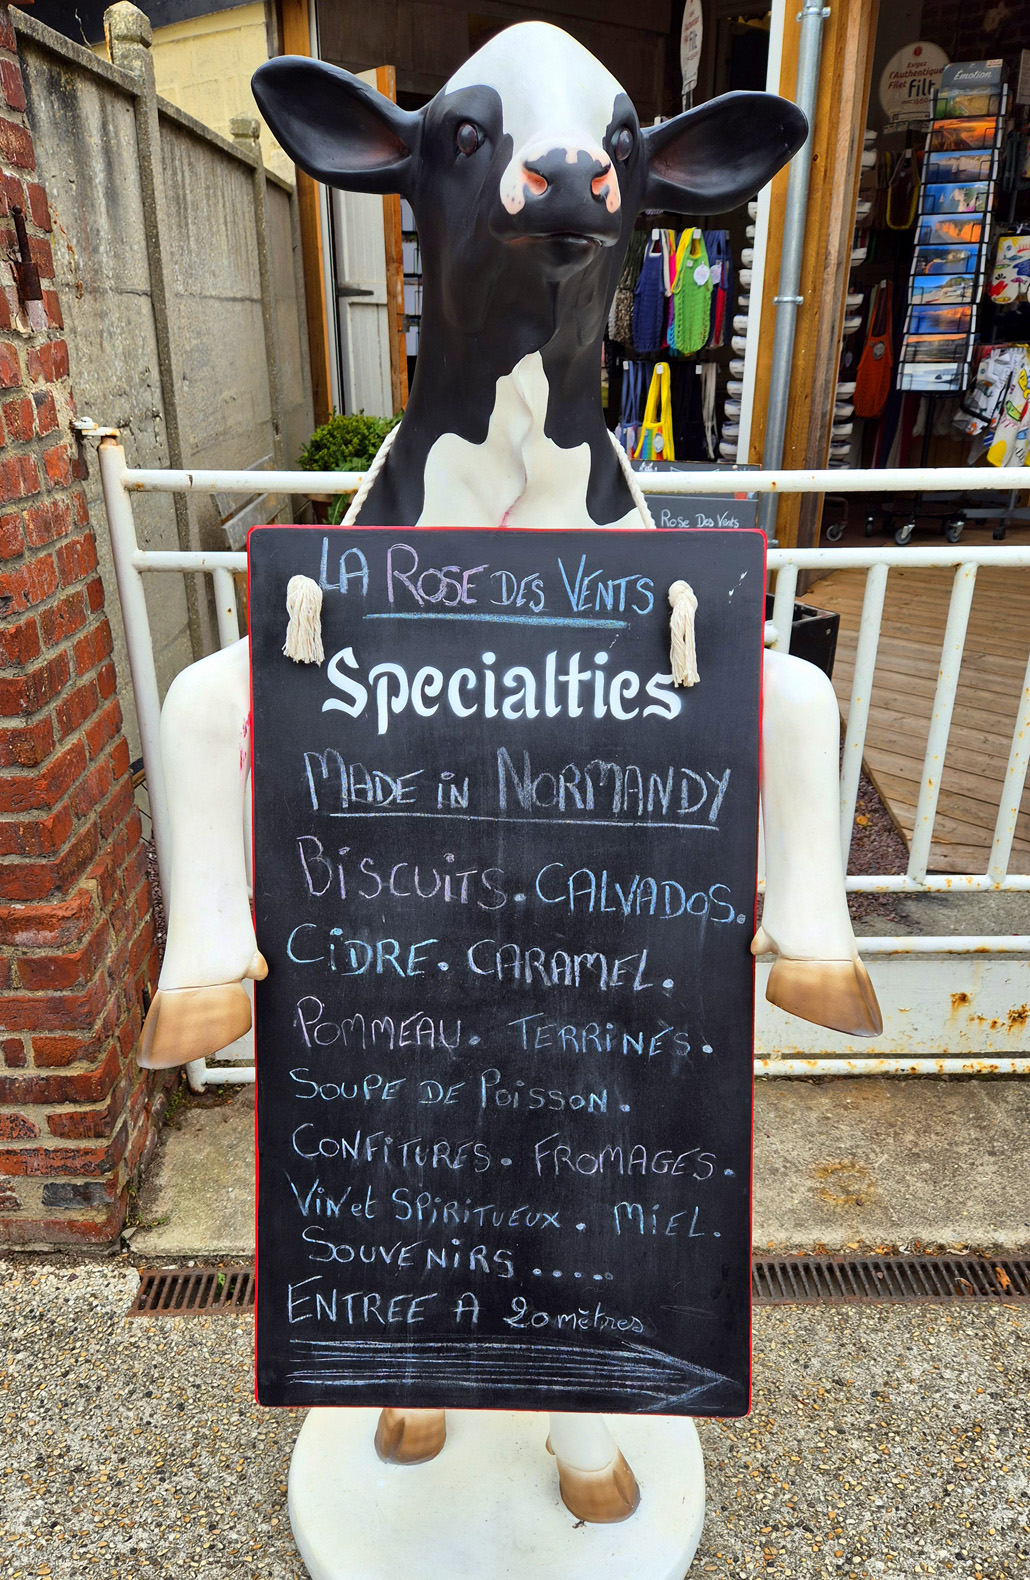 Exigez
l'Authentique
Filet Filt
Émotion
Rose Des Vents
LA ROSE DES VENTS
Specialties
MADE iN NORMANDY
BiSCUiTS. CALVADOS.
CiDRE. CARAMEL.
POMMEAU. TERRiNES.
SOUPE DE POiSSON.
CONFiTURES. FROMAGES.
ViN et SPiRiTUEUX. MiEL.
SOUVENiRS .....
ENTREE A 20 mètres